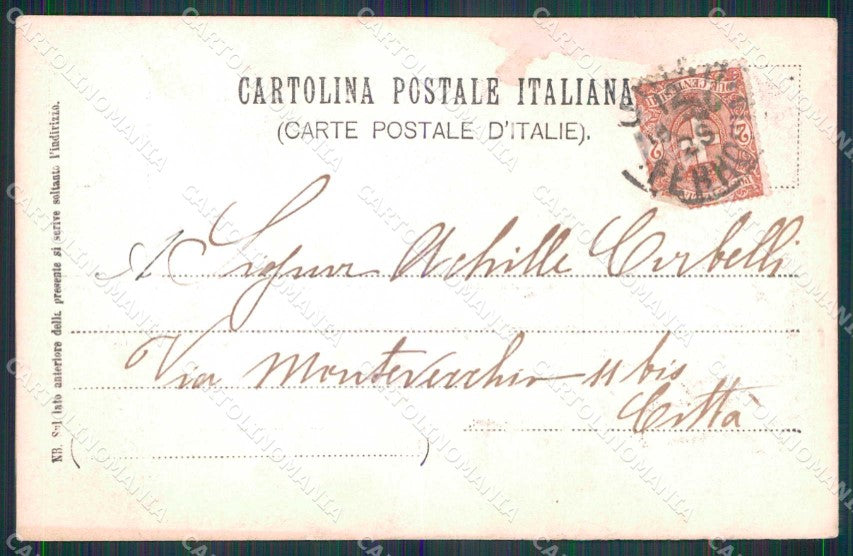 CARTOLINA POSTALE ITALIANA
(CARTE POSTALE D'ITALIE).
NB. Sul lato anteriore della presente si scrive soltanto l'indirizzo.
A Signor Achille Corbelli
Via Montevecchio 11 bis
Città
2 2
25
CARTOLINOMANIA